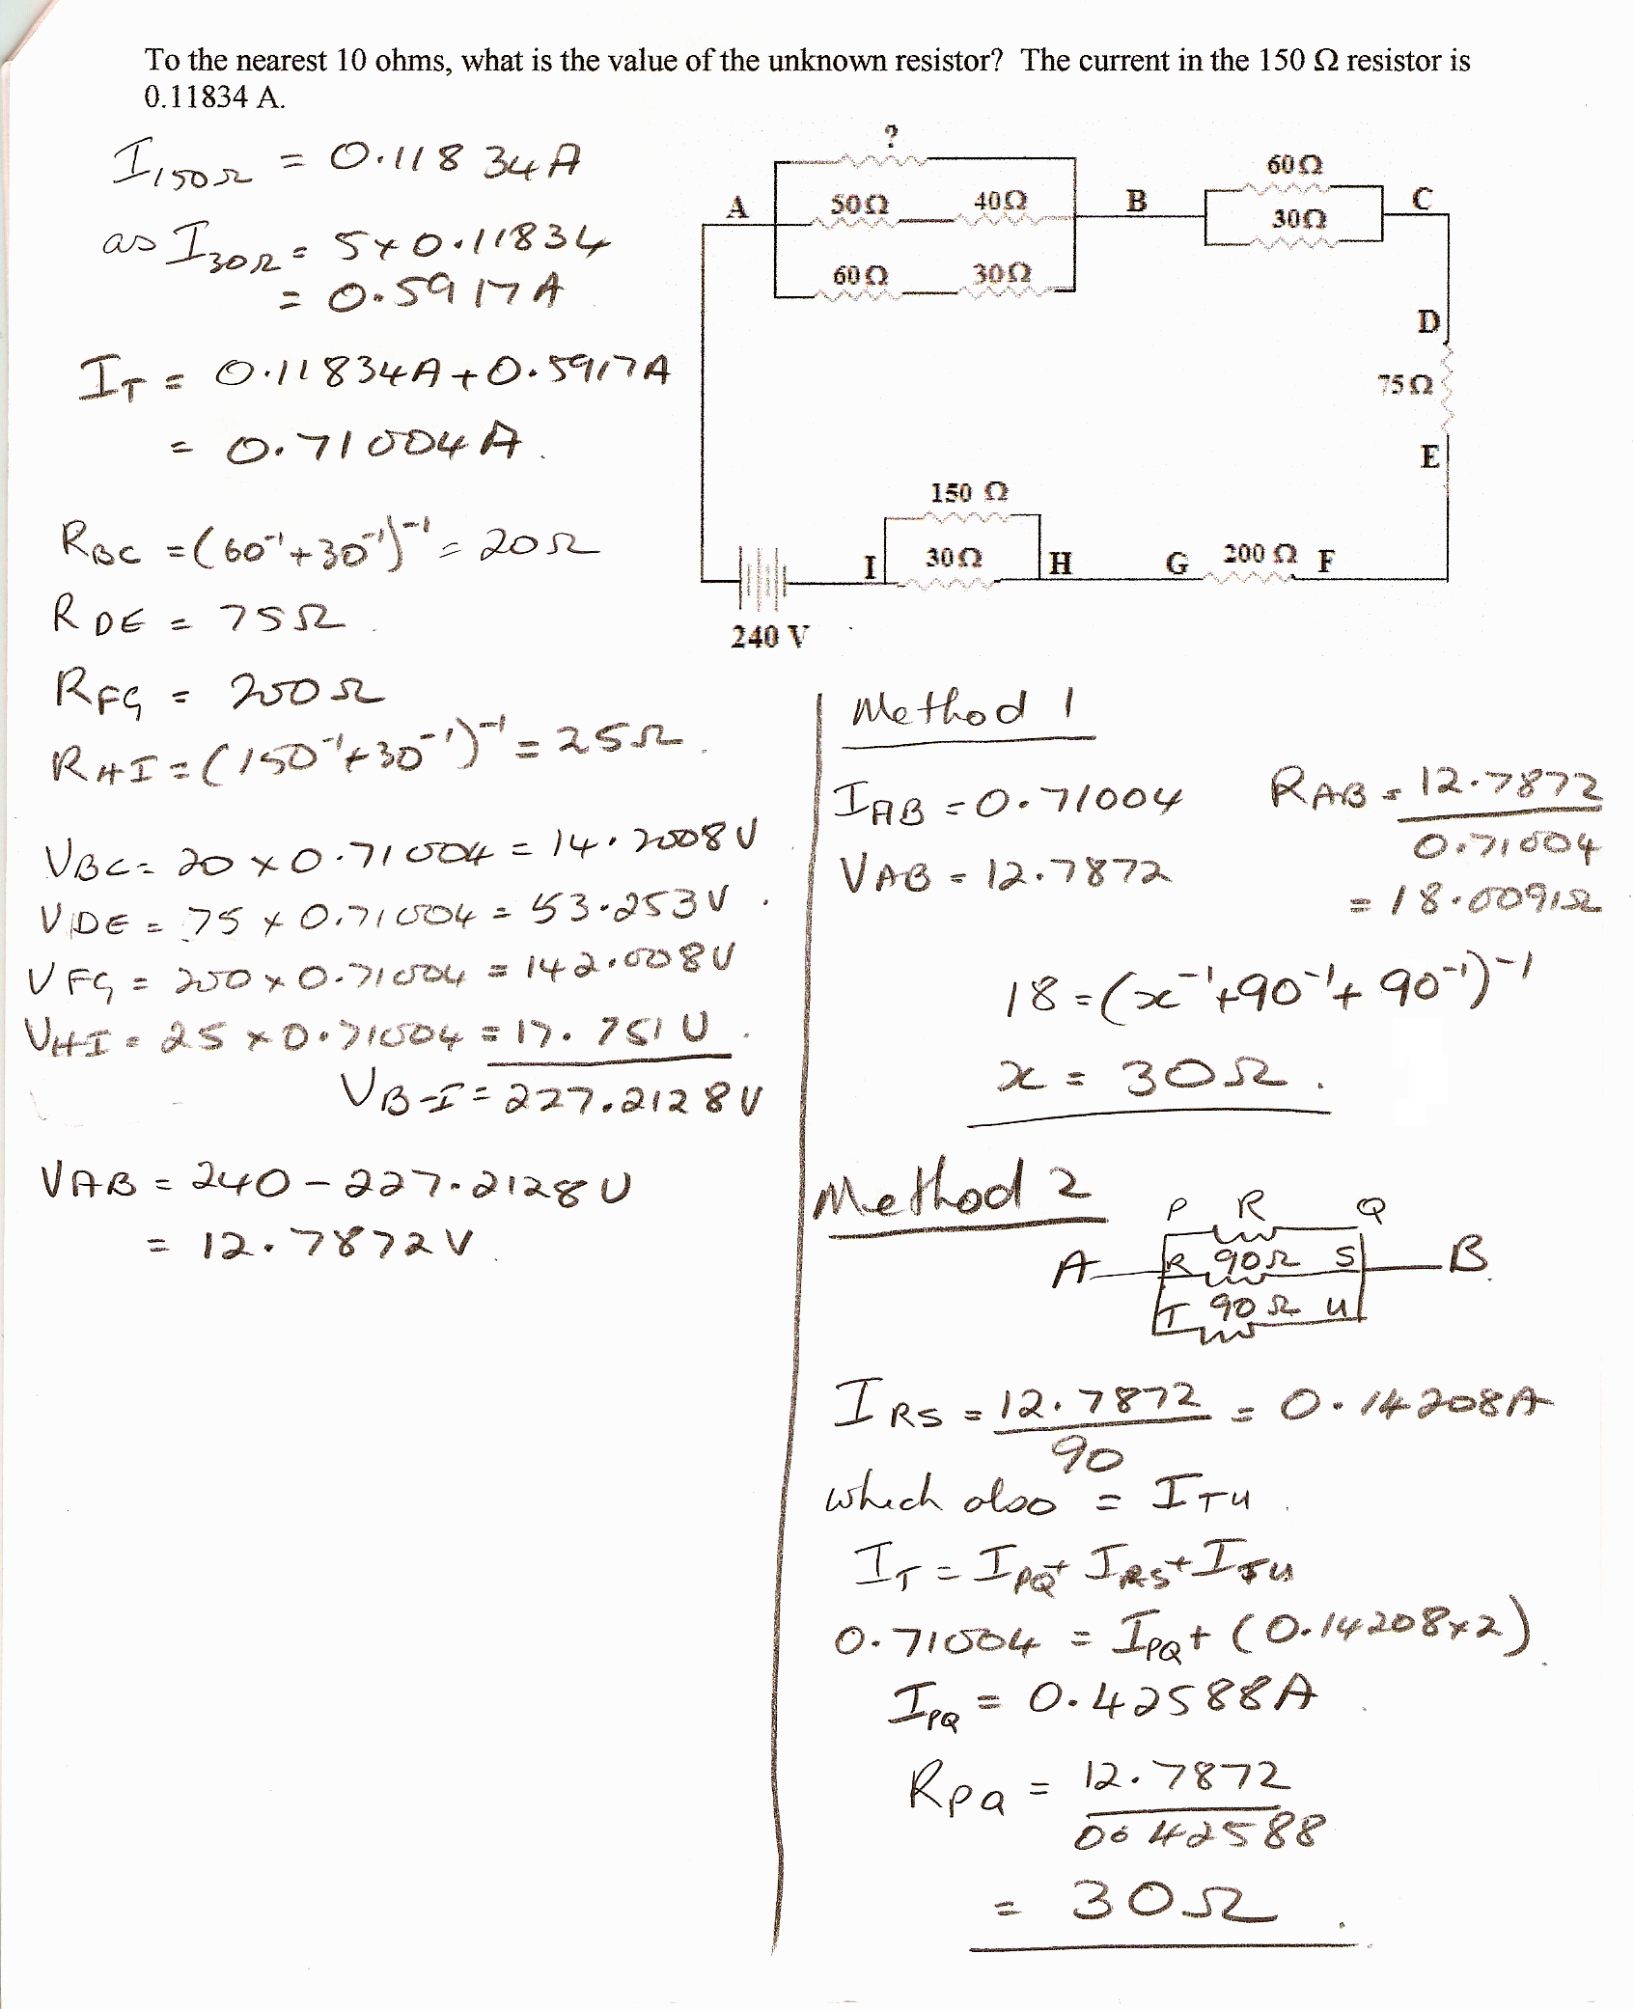 To the nearest 10 ohms, what is the value of the unknown resistor? The current in the 150 Ω resistor is
0.11834 A.
I150Ω = 0.11834A
as I30Ω = 5×0.11834
= 0.5917A
IT = 0.11834A+0.5917A
= 0.71004A.
RBC = (60⁻¹+30⁻¹)⁻¹ = 20Ω
RDE = 75Ω.
RFG = 200Ω
RHI = (150⁻¹+30⁻¹)⁻¹ = 25Ω.
VBC = 20 × 0.71004 = 14.2008V
VDE = 75 × 0.71004 = 53.253V.
VFG = 200 × 0.71004 = 142.008V
VHI = 25 × 0.71004 = 17.751V.
VB-I = 227.2128V
VAB = 240 - 227.2128V
= 12.7872V
?
A
50Ω
40Ω
B
60Ω
30Ω
C
60Ω
30Ω
D
75Ω
E
150 Ω
I
30Ω
H
G
200 Ω
F
240 V
Method 1
IAB = 0.71004
VAB = 12.7872
RAB = 12.7872
0.71004
= 18.0091Ω
18 = (x⁻¹+90⁻¹+90⁻¹)⁻¹
x = 30Ω.
Method 2
P R Q
A R 90Ω S B
T 90Ω U
IRS = 12.7872 = 0.14208A
90
which also = ITU.
IT = IPQ+IRS+ITU
0.71004 = IPQ+(0.14208×2).
IPQ = 0.42588A.
RPQ = 12.7872
0.42588
= 30Ω.